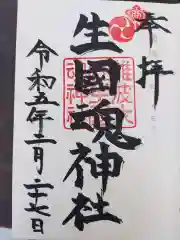 奉拝
生國魂神社
令和五年二月二十七日